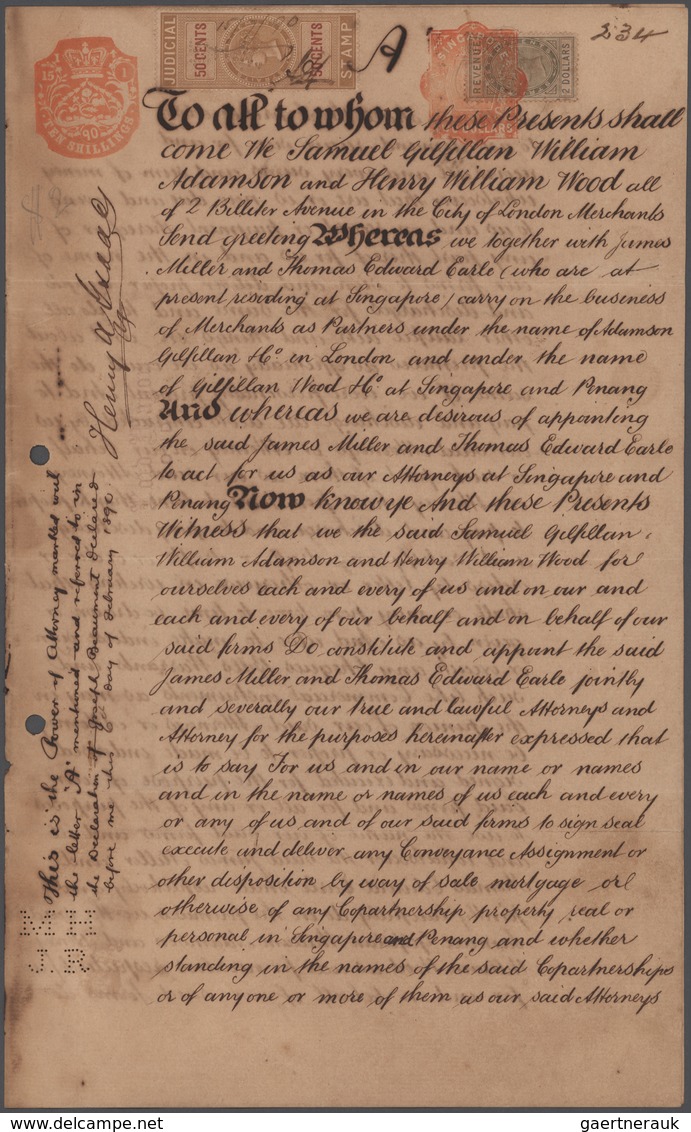 234
A
JUDICIAL
50 CENTS
50 CENTS
STAMP
REVENUE
2 DOLLARS
15
1
90
TEN SHILLINGS
To all to whom these Presents shall
come We Samuel Gilfillan William
Adamson and Henry William Wood all
of 2 Billiter Avenue in the City of London Merchants
Send greeting Whereas we together with James
Miller and Thomas Edward Earle (who are at
present residing at Singapore) carry on the business
of Merchants as Partners under the name of Adamson
Gilfillan & Co in London and under the name
of Gilfillan Wood & Co at Singapore and Penang
And whereas we are desirous of appointing
the said James Miller and Thomas Edward Earle
to act for us as our Attorneys at Singapore and
Penang Now know ye And these Presents
Witness that we the said Samuel Gilfillan
William Adamson and Henry William Wood for
ourselves each and every of us and on our and
each and every of our behalf and on behalf of our
said firms Do constitute and appoint the said
James Miller and Thomas Edward Earle jointly
and severally our true and lawful Attorneys and
Attorney for the purposes hereinafter expressed that
is to say For us and in our name or names
and in the name or names of us each and every
or any of us and of our said firms to sign seal
execute and deliver any Conveyance Assignment or
other disposition by way of sale mortgage or
otherwise of any Copartnership property real or
personal in Singapore and Penang and whether
standing in the names of the said Copartnerships
or of any one or more of them as our said Attorneys
This is the Power of Attorney marked with
the letter "A" mentioned and referred to in
the Declaration of Joseph Beaumont declared
before me this 6 day of February 1890
Henry A
M H
J. R
gaertnerauk